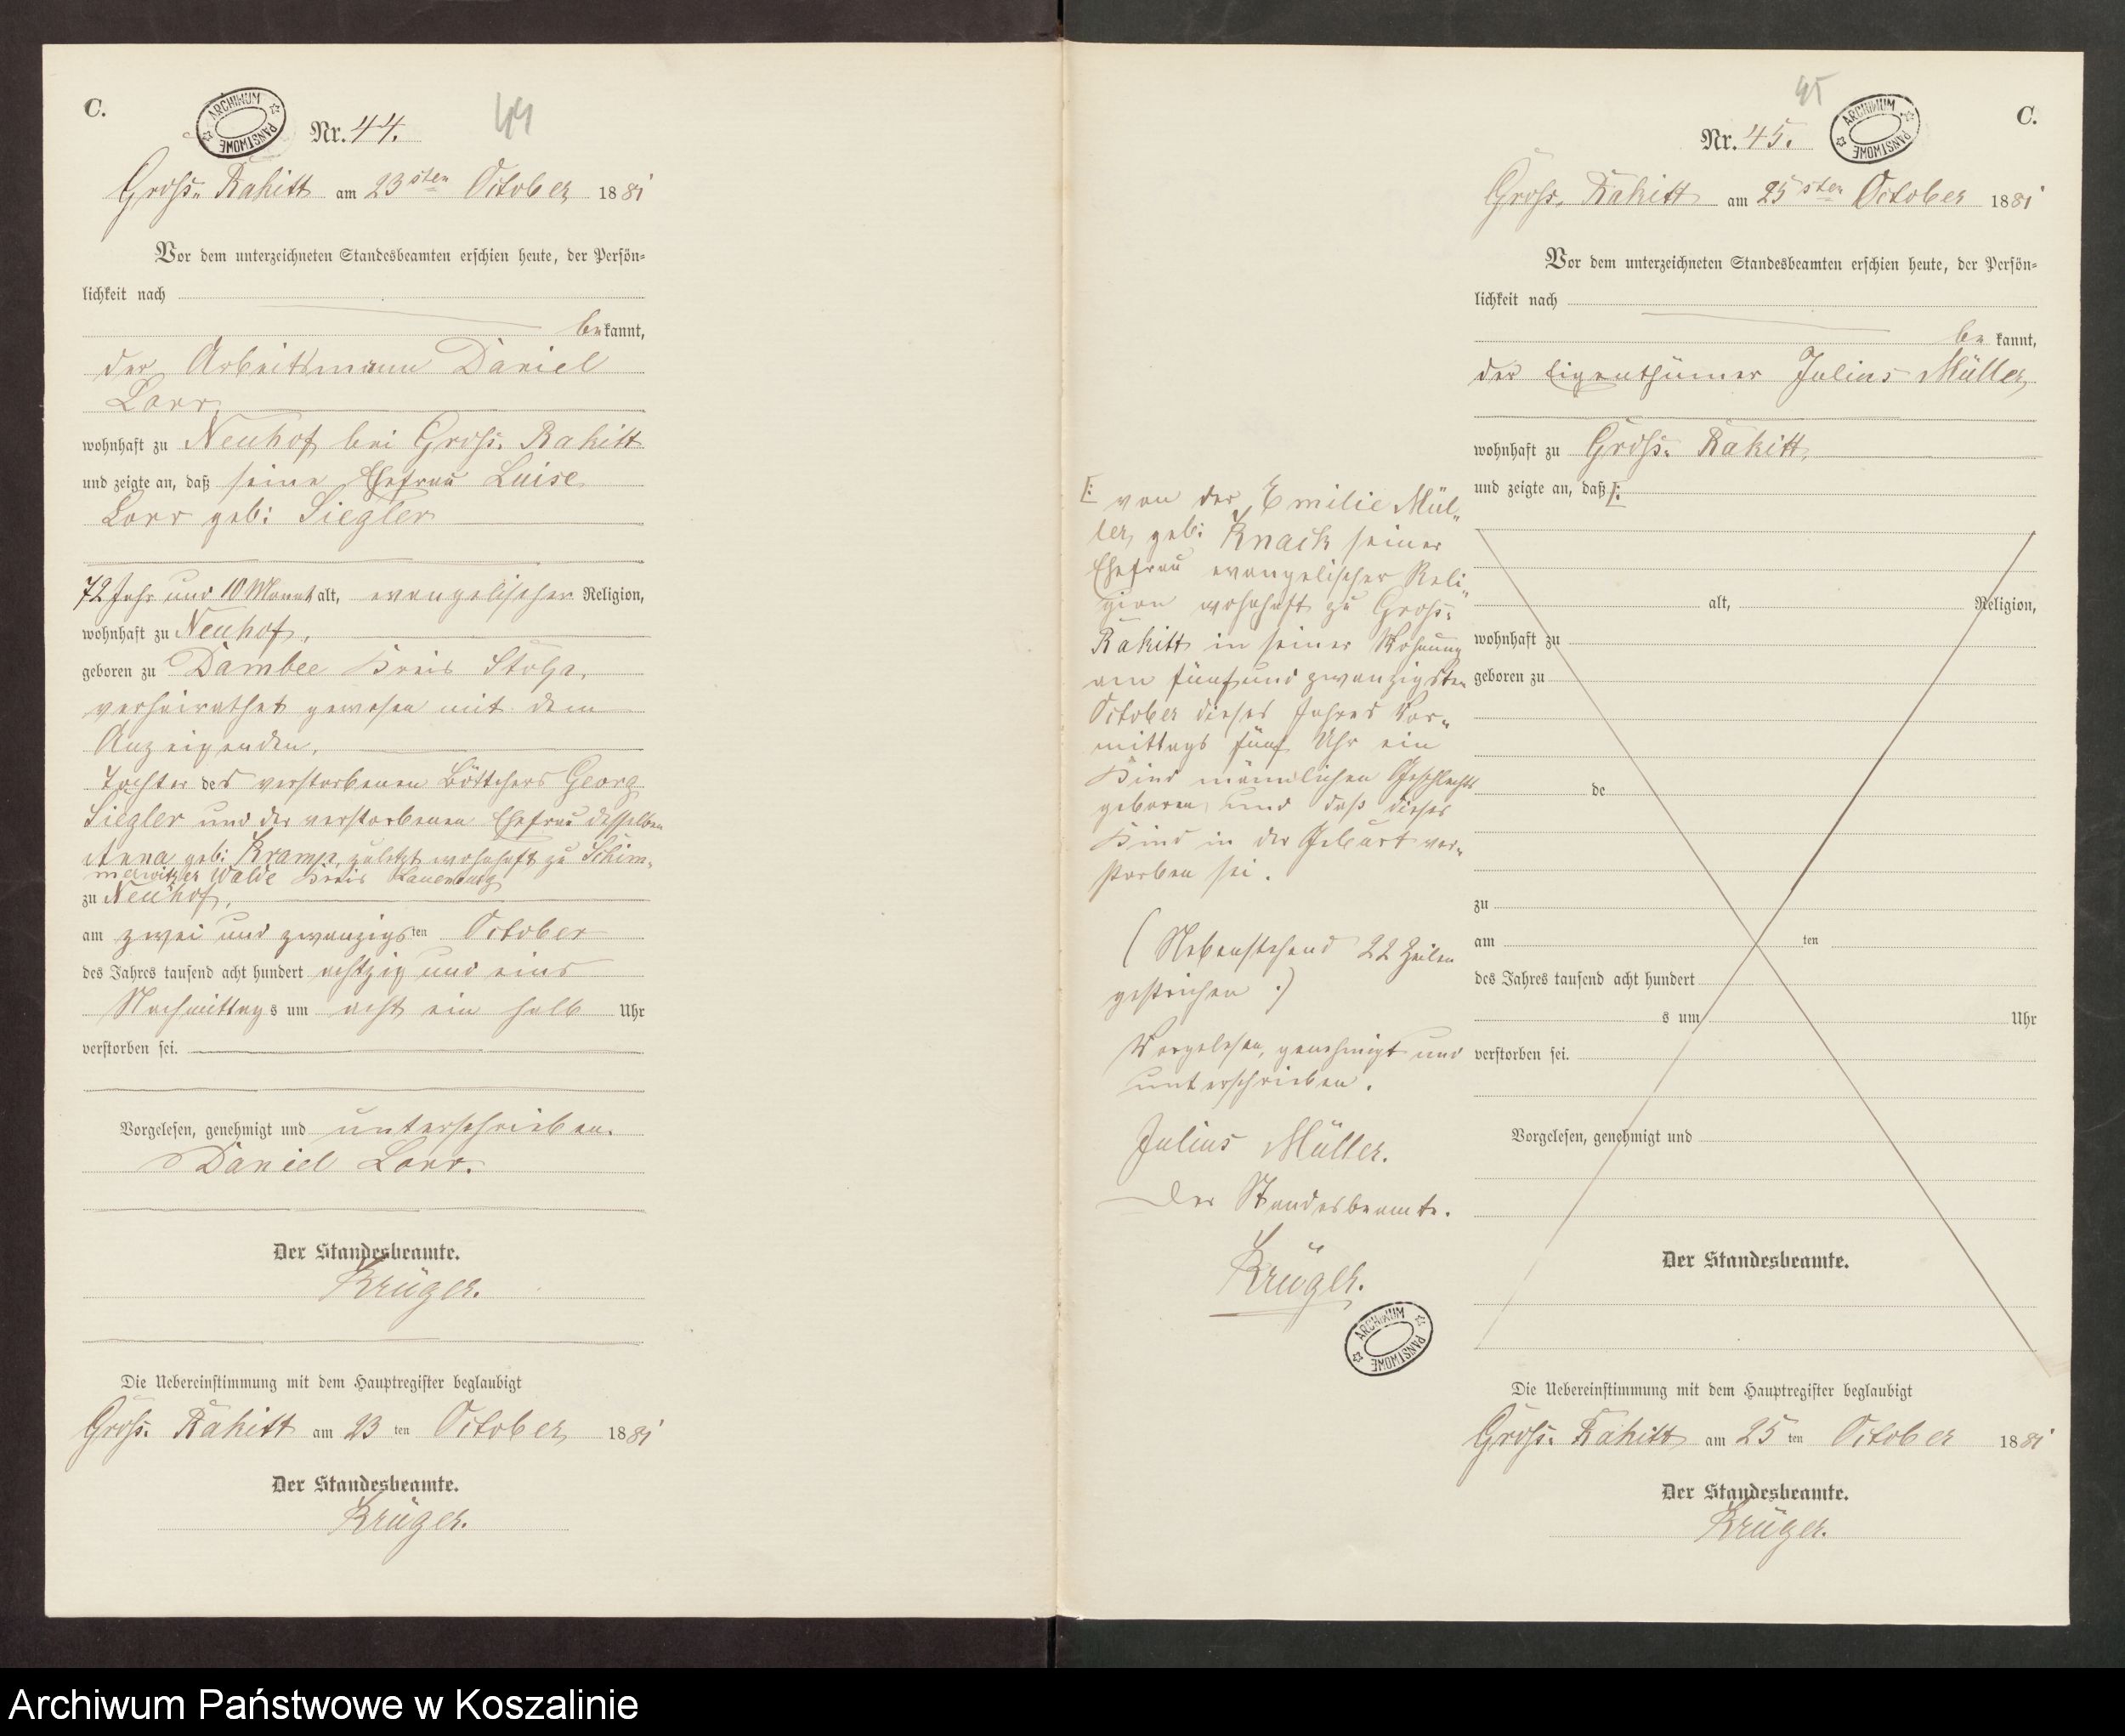 C.
ARCHIWUM PAŃSTWOWE
Nr. 44.
44
Groß- Rakitt am 23sten October 1881
Vor dem unterzeichneten Standesbeamten erschien heute, der Persön-
lichkeit nach
bekannt,
der Arbeitsmann Daniel
Lorr
wohnhaft zu Neuhof bei Groß- Rakitt
und zeigte an, daß seine Ehefrau Luise
Lorr geb: Siegler
72 Jahr und 10 Monat alt, evangelischer Religion,
wohnhaft zu Neuhof,
geboren zu Dambee Kreis Stolp,
verheirathet gewesen mit dem
Anzeigenden,
Tochter des verstorbenen Böttchers Georg
Siegler und der verstorbenen Ehefrau desselben
Anna geb: Kramp, zuletzt wohnhaft zu Schim-
merwitzer Walde Kreis Lauenburg
zu Neuhof,
am zwei und zwanzigsten October
des Jahres tausend acht hundert achtzig und eins
Nachmittags um acht ein halb Uhr
verstorben sei.
Vorgelesen, genehmigt und unterschrieben.
Daniel Lorr.
Der Standesbeamte.
Krüger.
Die Uebereinstimmung mit dem Hauptregister beglaubigt
Groß- Rakitt am 23 ten October 1881
Der Standesbeamte.
Krüger.
45
C.
Nr. 45.
ARCHIWUM PAŃSTWOWE
Groß- Rakitt am 25sten October 1881
Vor dem unterzeichneten Standesbeamten erschien heute, der Persön-
lichkeit nach
be kannt,
der Eigenthümer Julius Müller,
wohnhaft zu Groß- Rakitt,
und zeigte an, daß [:
[: von der Emilie Mül-
ler, geb: Knack seiner
Ehefrau evangelischer Reli-
gion wohnhaft zu Groß-
Rakitt in seiner Wohnung
am fünf und zwanzigsten
October dieses Jahres Vor-
mittags fünf Uhr ein
Kind männlichen Geschlechts
geboren und daß dieses
Kind in der Geburt ver-
storben sei.
(Nebenstehend 22 Zeilen
gestrichen.)
Vorgelesen, genehmigt und
unterschrieben.
Julius Müller.
Der Standesbeamte.
Krüger.
ARCHIWUM PAŃSTWOWE
alt, Religion,
wohnhaft zu
geboren zu
de
zu
am ten
des Jahres tausend acht hundert
s um Uhr
verstorben sei.
Vorgelesen, genehmigt und
Der Standesbeamte.
Die Uebereinstimmung mit dem Hauptregister beglaubigt
Groß- Rakitt am 25 ten October 1881
Der Standesbeamte.
Krüger.
Archiwum Państwowe w Koszalinie